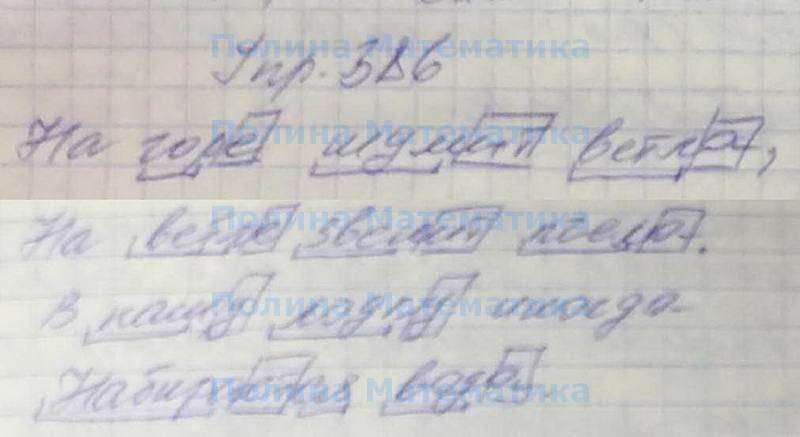 Упр. 386
На горе шумит ветла,
На ветле звенит пчела.
В нашу лодку иногда
Набирается вода.
Полина Математика
Полина Математика
Полина Математика
Полина Математика
Полина Математика